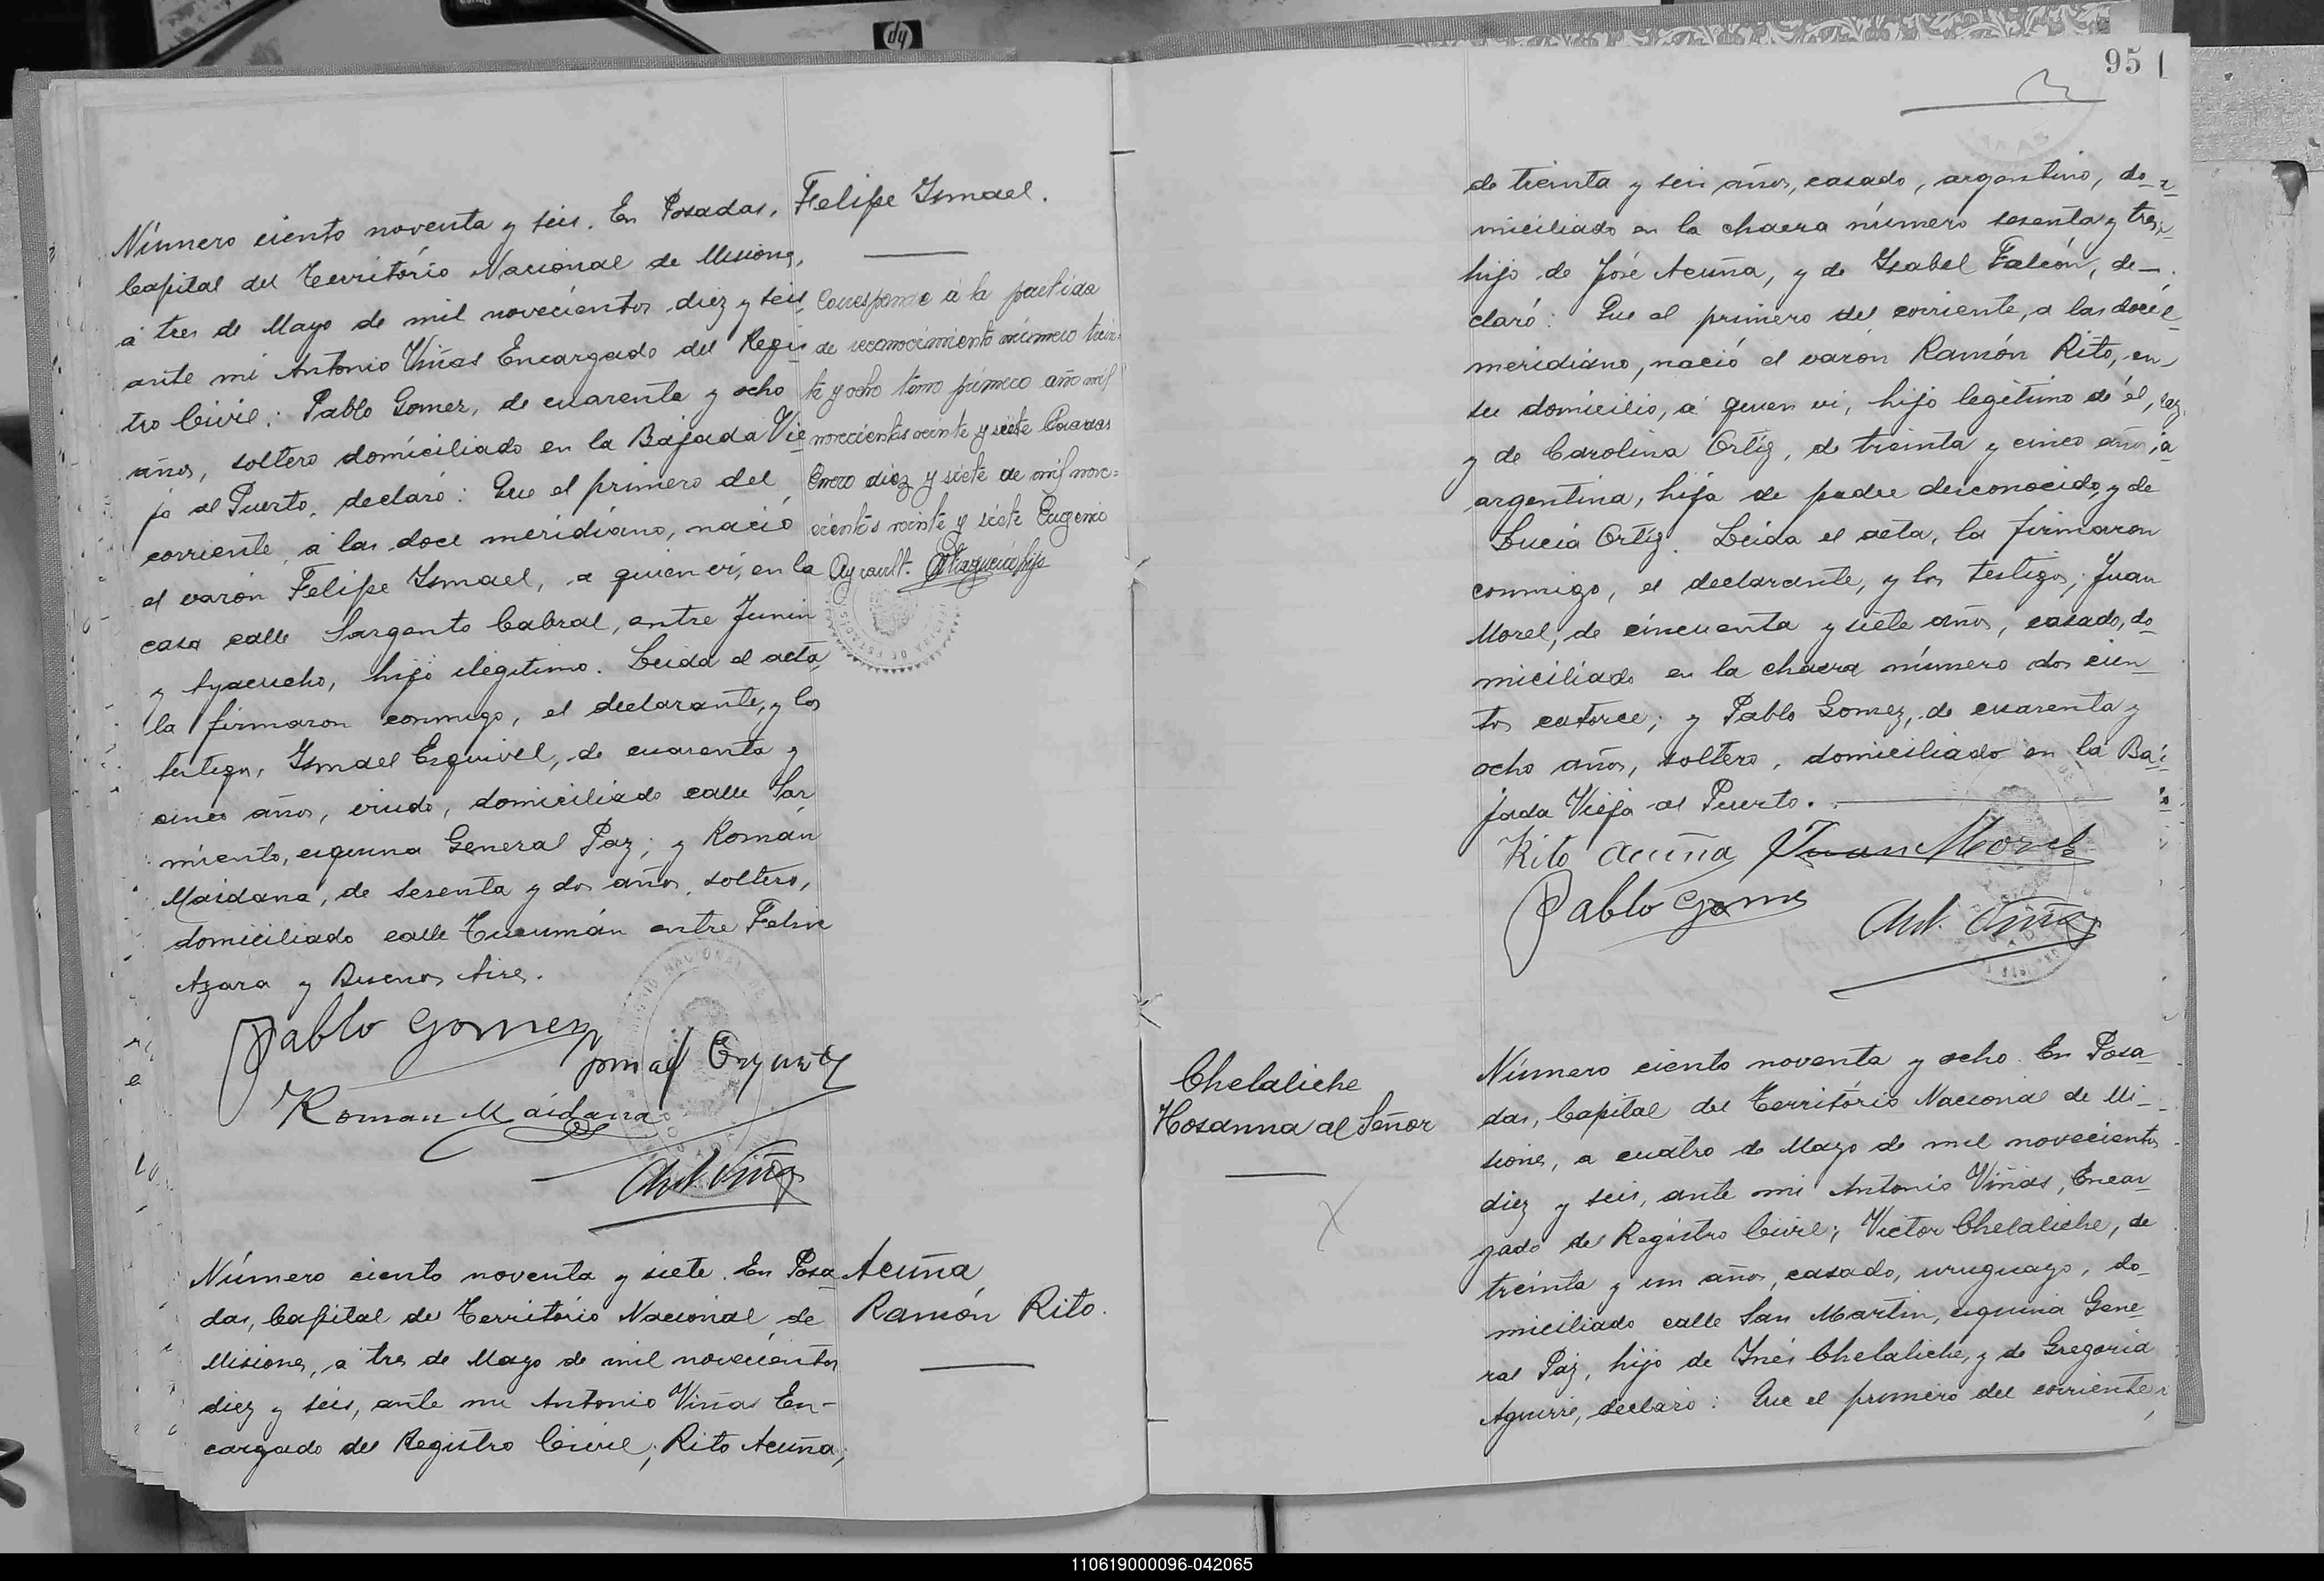 Número ciento noventa y seis. En Posadas,
Capital del Território Nacional de Misiones,
á tres de Mayo de mil novecientos diez y seis
ante mi Antonio Viñas Encargado del Regis
tro Civil: Pablo Gomez, de cuarenta y ocho
años, soltero domiciliado en la Bajada Vie
ja al Puerto, declaró: Que el primero del
corriente, á las doce meridiano, nació
el varón Felipe Ismael, a quien vi, en la
casa calle Sargento Cabral, entre Junin
y Ayacucho, hijo ilegitimo. Leida el acta
la firmaron conmigo, el declarante, y los
testigos, Ismael Esquivel, de cuarenta y
cinco años, viudo, domiciliado calle Sar
miento, esquina General Paz; y Román
Maidana, de sesenta y dos años, soltero,
domiciliado calle Tucumán entre Felix
Azara y Buenos Aires.
Pablo Gomez
Ismael Esquivel
Roman Maidana
Ant. Viñas
Felipe Ismael.
Corresponde á la partida
de reconocimiento número trein
ta y ocho tomo primero año mil
novecientos veinte y siete Posadas
Enero diez y siete de mil nove=
cientos veinte y siete Eugenio
Ayrault.
Número ciento noventa y siete. En Posa
das, Capital del Território Nacional de
Misiones, a tres de Mayo de mil novecientos
diez y seis, ante mi Antonio Viñas En-
cargado del Registro Civil; Rito Acuña,
Acuña
Ramón Rito.
95
de treinta y seis años, casado, argentino, do-
miciliado en la chacra número sesenta y tres,
hijo de José Acuña, y de Isabel Falcón, de-
claró: Que el primero del corriente, a las doce
meridiano, nació el varón Ramón Rito, en
su domicilio, a quien vi, hijo legitimo de él,
y de Carolina Ortiz, de treinta y cinco años,
argentina, hija de padre desconocido, y de
Lucia Ortiz. Leida el acta, la firmaron
conmigo, el declarante, y los testigos, Juan
Morel, de cincuenta y siete años, casado, do
miciliado en la chacra número dos cien
tos catorce; y Pablo Gomez, de cuarenta y
ocho años, soltero, domiciliado en la Ba
jada Vieja al Puerto.
Rito Acuña Juan Morel
Pablo Gomez
Ant. Viñas
Chelaliche
Hosanna al Señor
Número ciento noventa y ocho. En Posa
das, Capital del Território Nacional de Mi-
siones, a cuatro de Mayo de mil novecientos
diez y seis, ante mi Antonio Viñas, Encar
gado del Registro Civil; Victor Chelaliche, de
treinta y un años, casado, uruguayo, do
miciliado calle San Martin, esquina Gene
ral Paz, hijo de Inés Chelaliche, y de Gregoria
Aguirre, declaró: Que el primero del corriente,
110619000096-042065